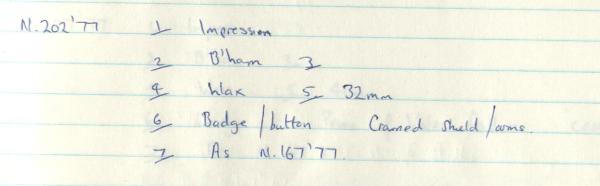 N.202'77 1 Impression
2 B'ham 3
4 Wax 5 32mm
6 Badge/button Crowned shield/arms.
7 As N.167'77.